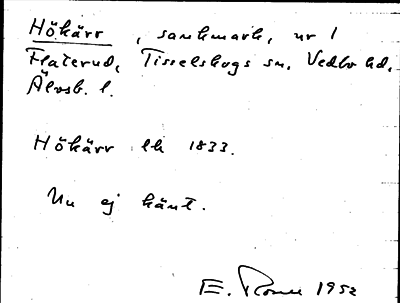 Hökärr, sankmark, nr 1
Flaterud, Tisselskogs sn, Vedbo hd,
Älvsb. l.
Hökärr lh 1833.
Nu ej känt.
E. 1952